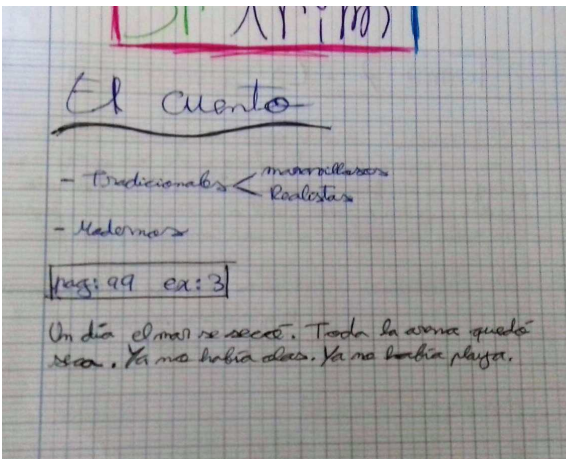 El cuento
- Tradicionales < maravillosos
Realistas
- Modernos
pag: 99 ex: 3
Un día el mar se secó. Toda la arena quedó
seca. Ya no había olas. Ya no había playa.